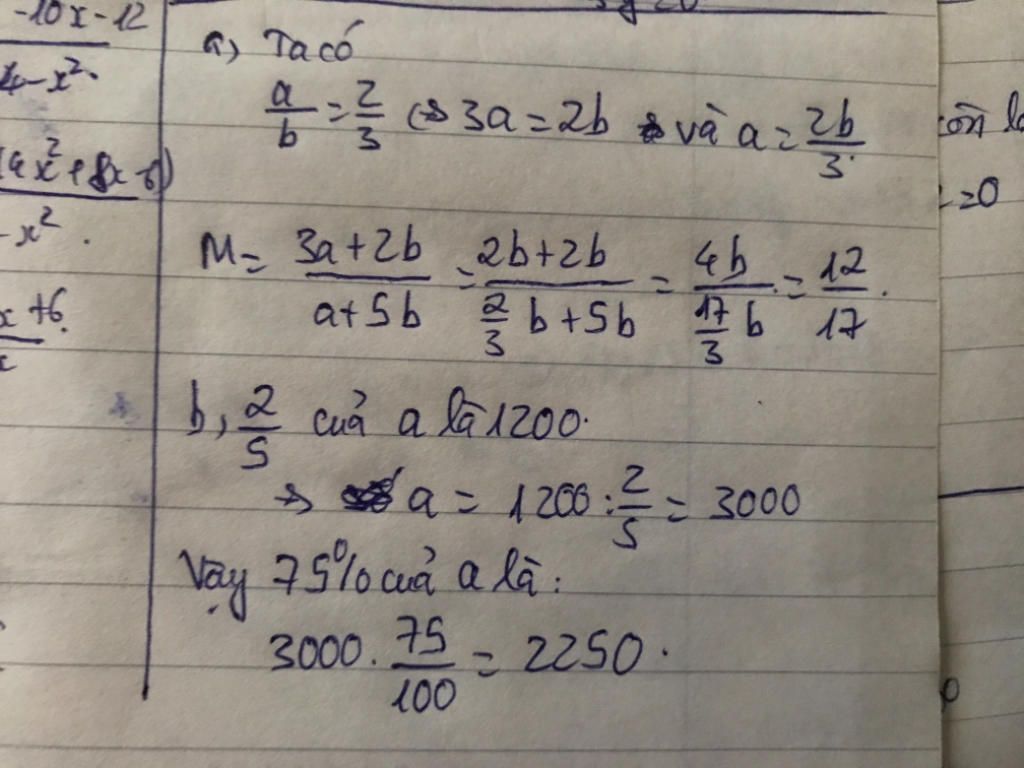 -10x-12
4-x².
x+6.
x
a, Ta có
a/b = 2/3 (=> 3a = 2b và a = 2b/3.
M = (3a+2b)/(a+5b) = (2b+2b)/(2/3 b+5b) = 4b/(17/3 b) = 12/17.
b, 2/5 cuả a là 1200.
=> a = 1200 : 2/5 = 3000
Vậy 75% cuả a là:
3000 . 75/100 = 2250.
=0